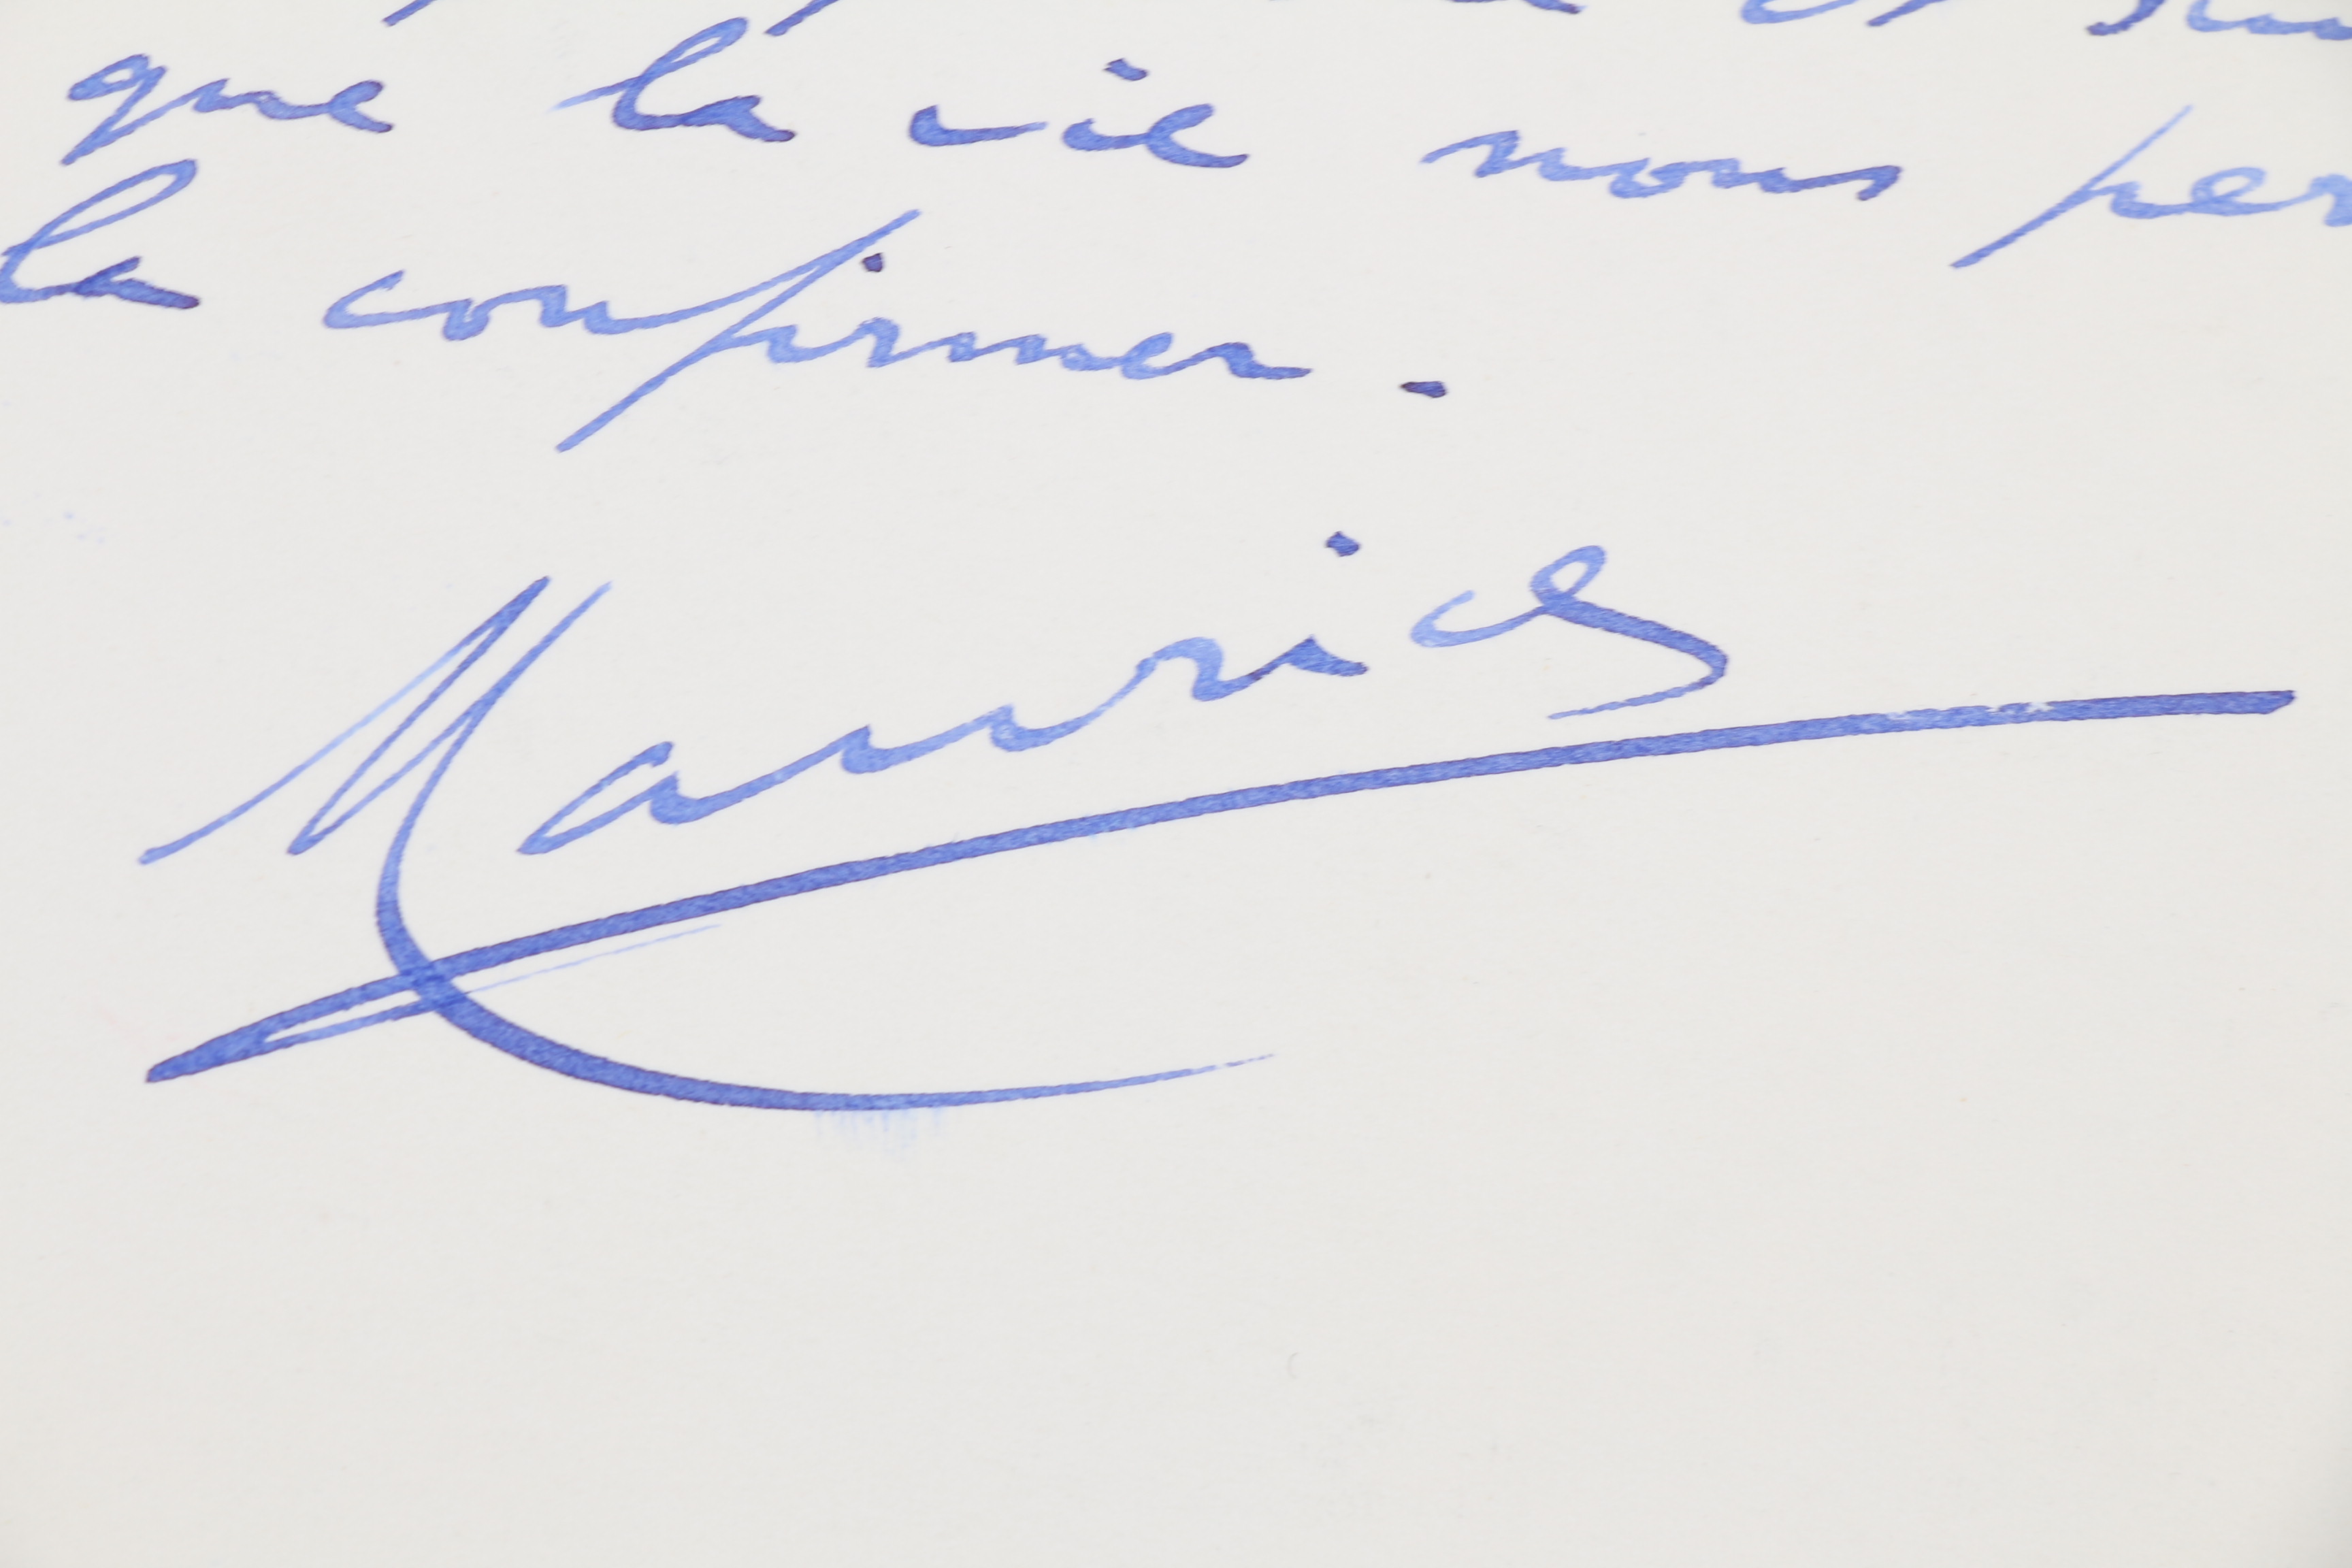 que la vie nous per
la confirmer.
Maurice